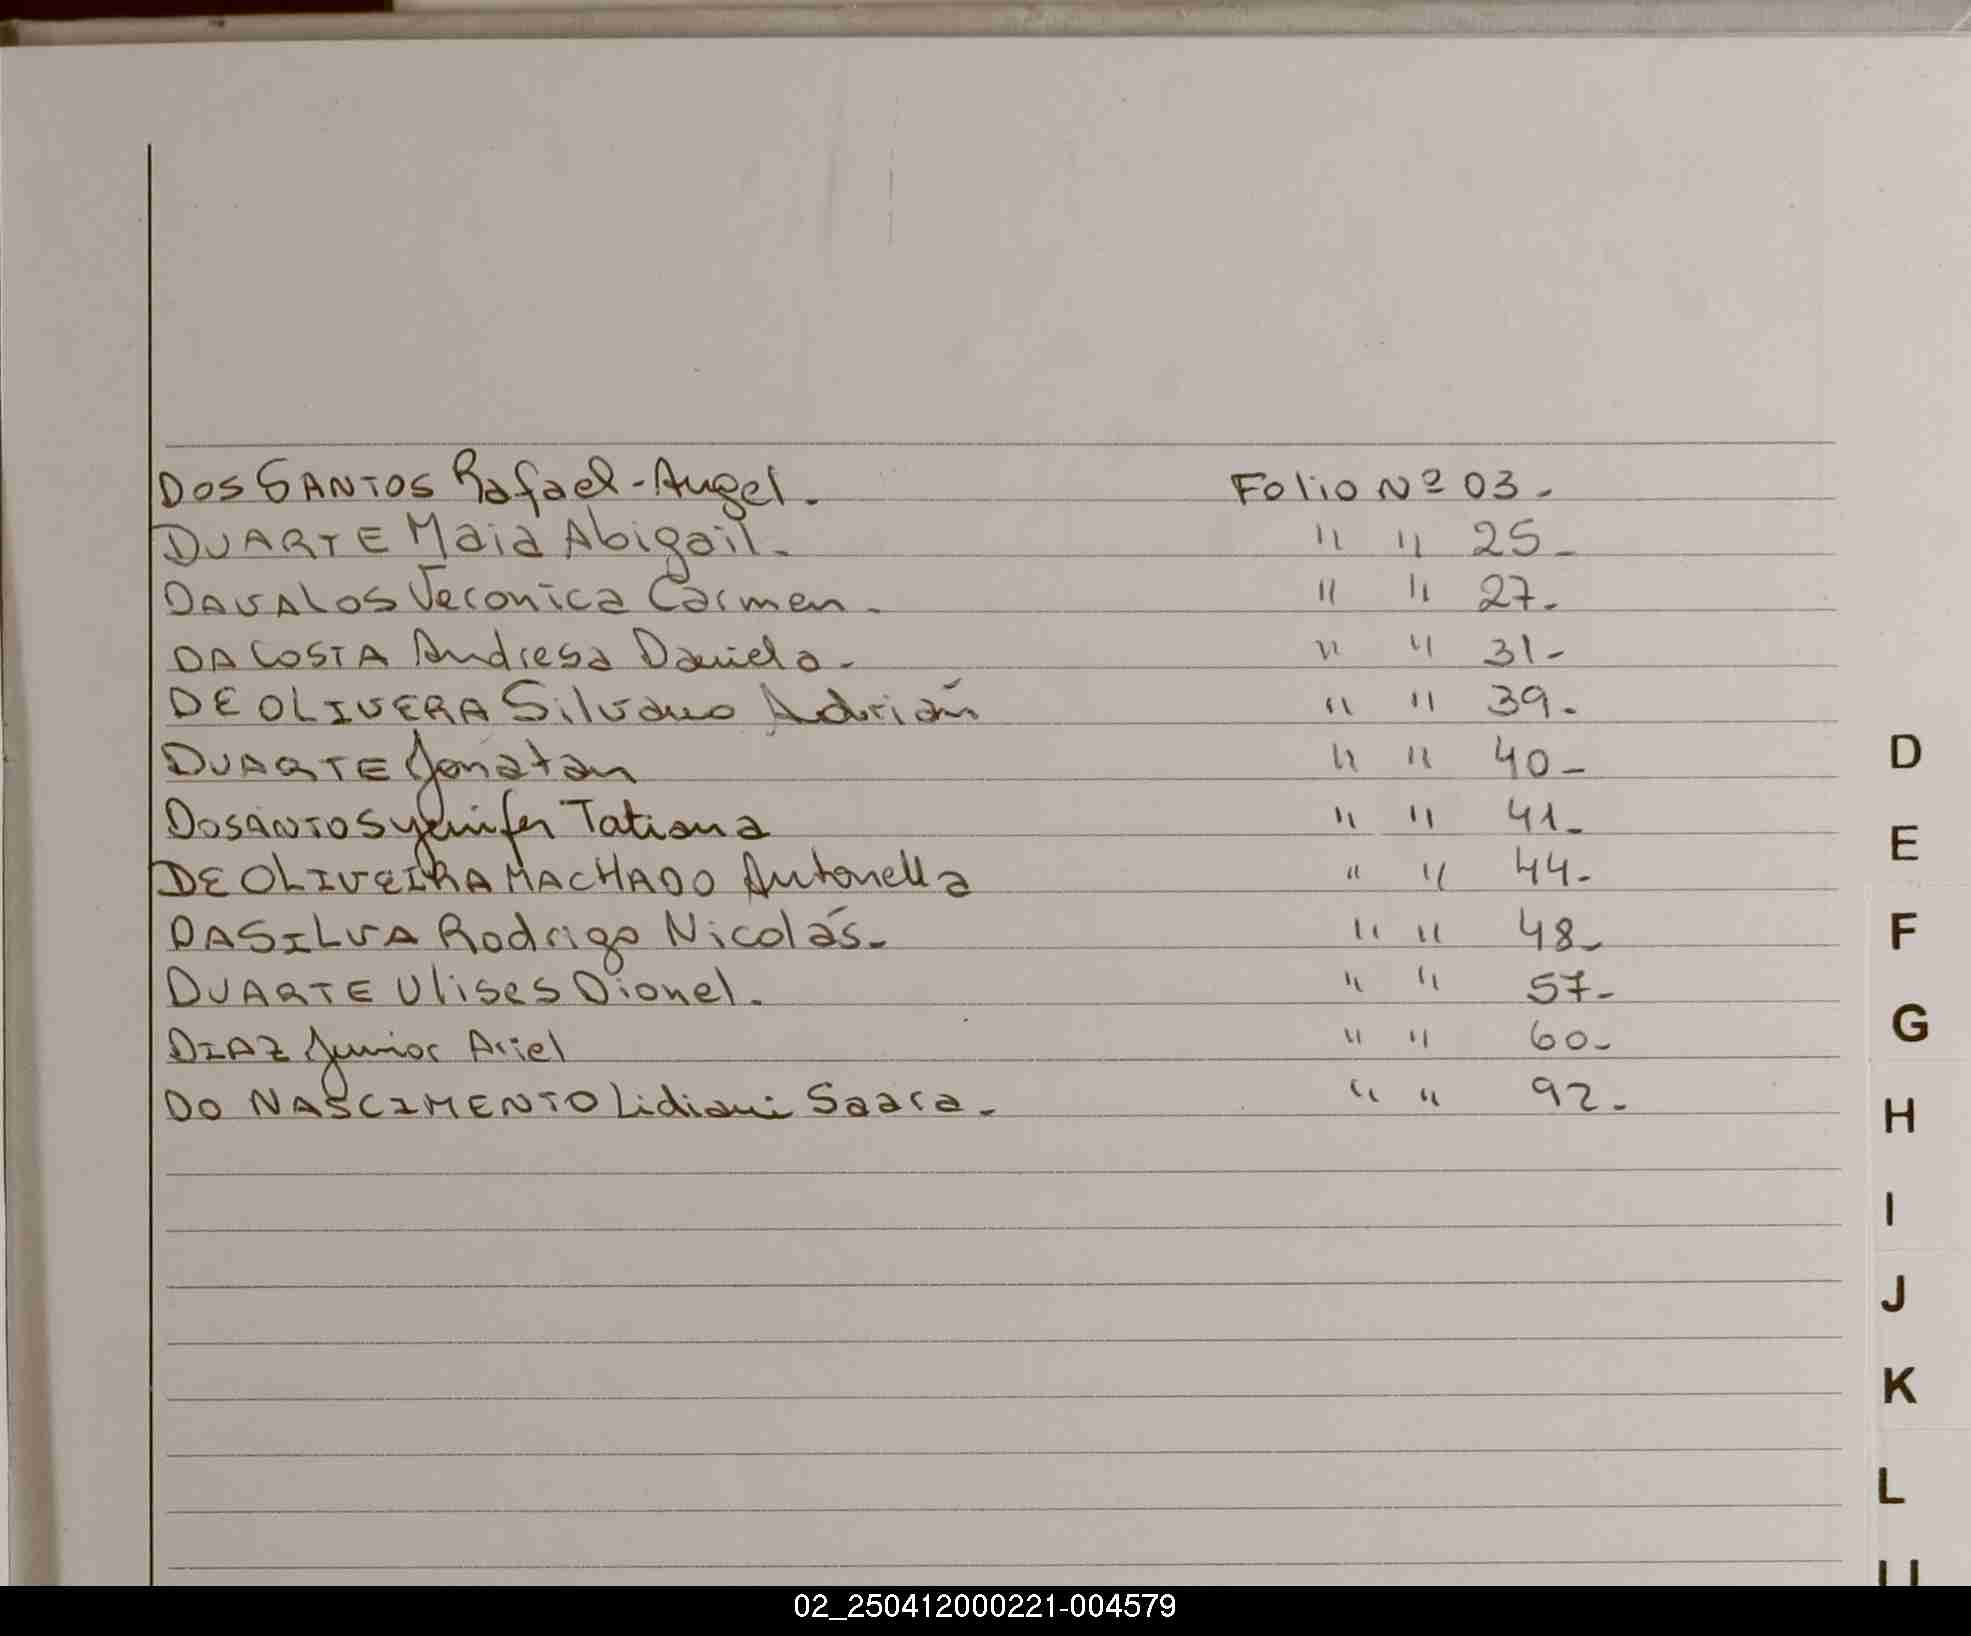 DOS SANTOS Rafael-Angel. Folio Nº 03.
DUARTE Maia Abigail. " " 25-
DAVALOS Veronica Carmen. " " 27.
DA COSTA Andresa Daniela. " " 31-
DE OLIVERA Silvano Adrián " " 39.
DUARTE Jonatan " " 40-
DOSANTOS yenifer Tatiana " " 41.
DE OLIVEIRA MACHADO Antonella " " 44.
DASILVA Rodrigo Nicolás. " " 48-
DUARTE Ulises Dionel. " " 57-
DIAZ Junior Ariel " " 60-
DO NASCIMENTO Lidiani Saara. " " 92.
D
E
F
G
H
I
J
K
L
02_250412000221-004579